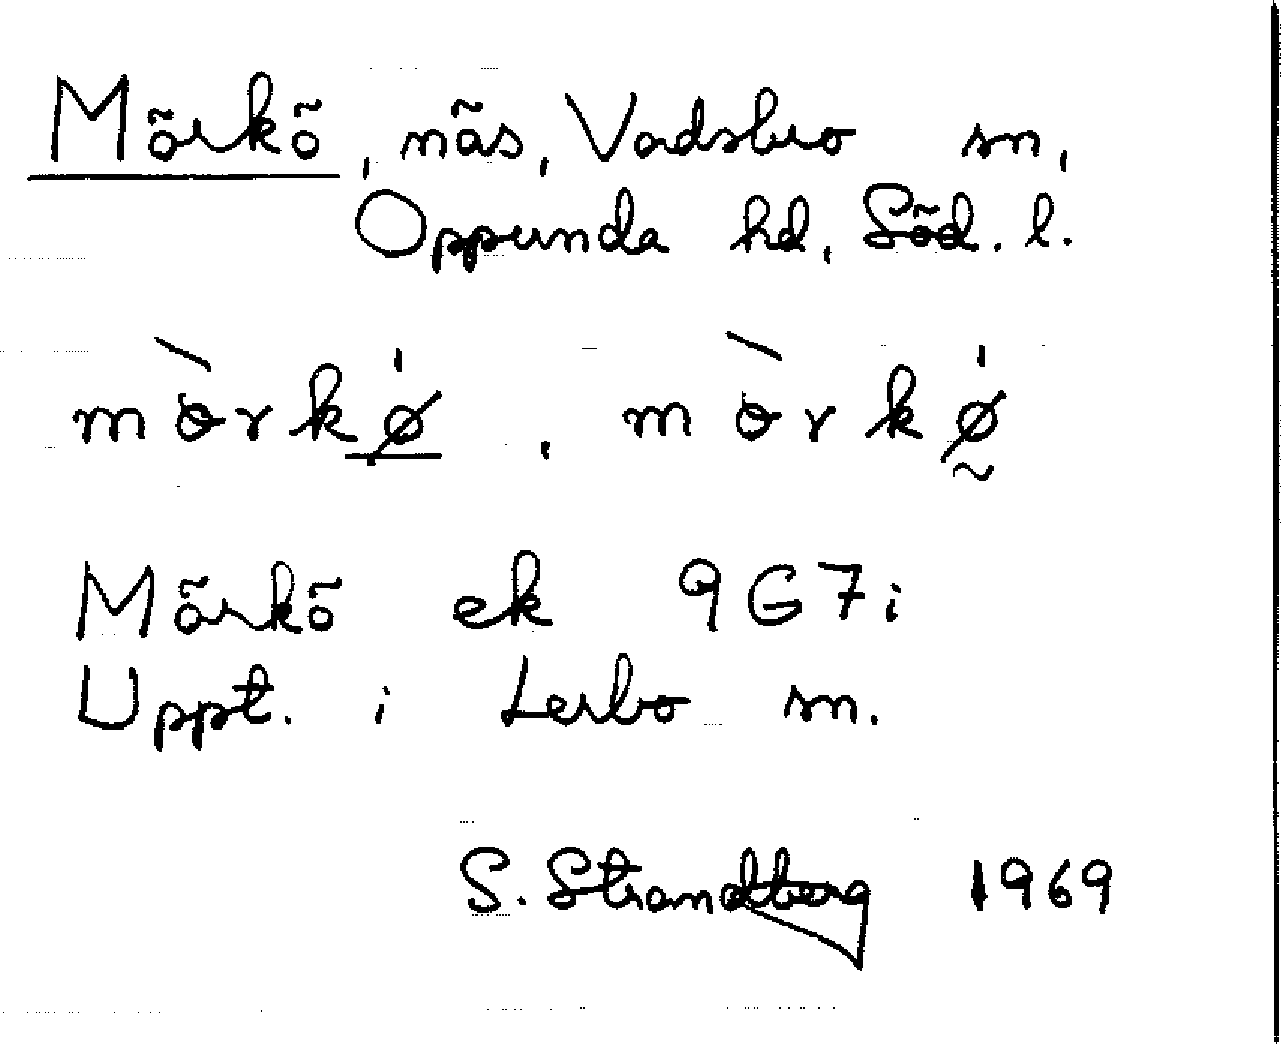 Mörkö, näs, Vadsbro sn,
Oppunda hd, Söd. l.
mòrkǿ, mòrkǿ̰
Mörkö ek 9G7i
Uppt. i Lerbo sn.
S. Strandberg 1969